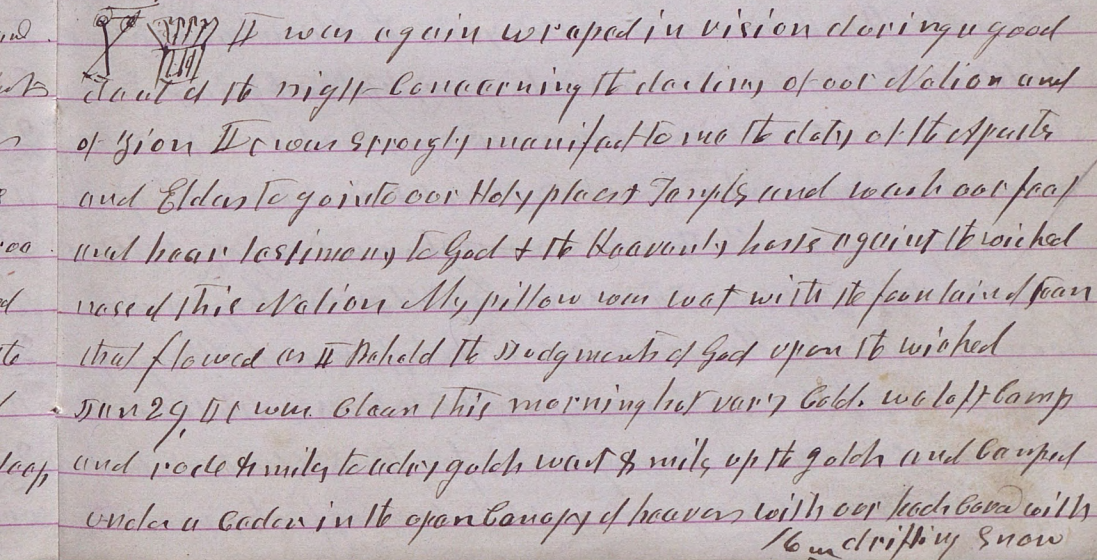 I was again wraped in vision during a good
deal of the night Concerning the destiny of our Nation and
of Zion It was strongly manifest to me the duty of the Apostles
and Elders to go into our Holy places & Temples and wash our feet
and bear testimony to God & the Heavenly hosts against the wicked
ness of this Nation My pillow was wet with the fountain of tears
that flowed as I Beheld the Judgments of God upon the wicked
Jan 29, It was Clear this morning but very Cold. we left Camp
and rode 8 miles to dry gulch west 8 miles up the gulch and Camped
under a Cedar in the open Canopy of heavens with our heads Coverd with
16 m drifting Snow